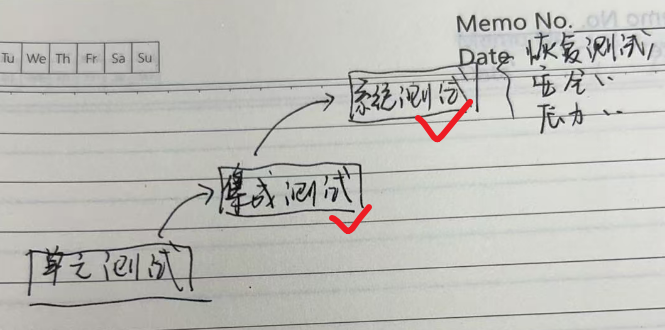 Memo No.
Date
Tu We Th Fr Sa Su
恢复测试,
安全〃
压力〃
系统测试
集成测试
单元测试